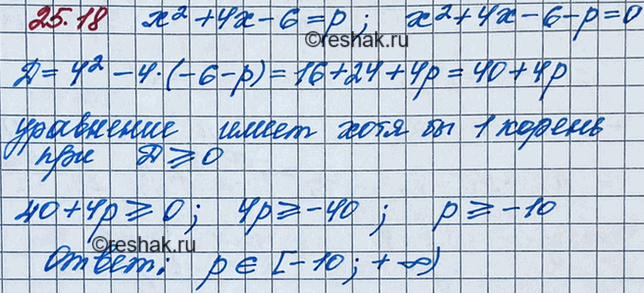 25.18 x² + 4x - 6 = p ; x² + 4x - 6 - p = 0
©reshak.ru
Д = 4² - 4·(-6-p) = 16 + 24 + 4p = 40 + 4p
уравнение имеет хотя бы 1 корень
при Д ≥ 0
40 + 4p ≥ 0 ; 4p ≥ -40 ; p ≥ -10
©reshak.ru
Ответ: p ∈ [-10 ; +∞)